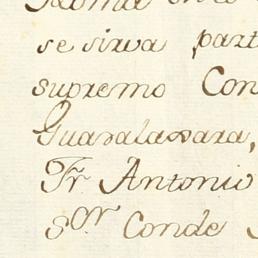 se sirva part
supremo Con
Guadalaxara,
Fr Antonio
Sor Conde